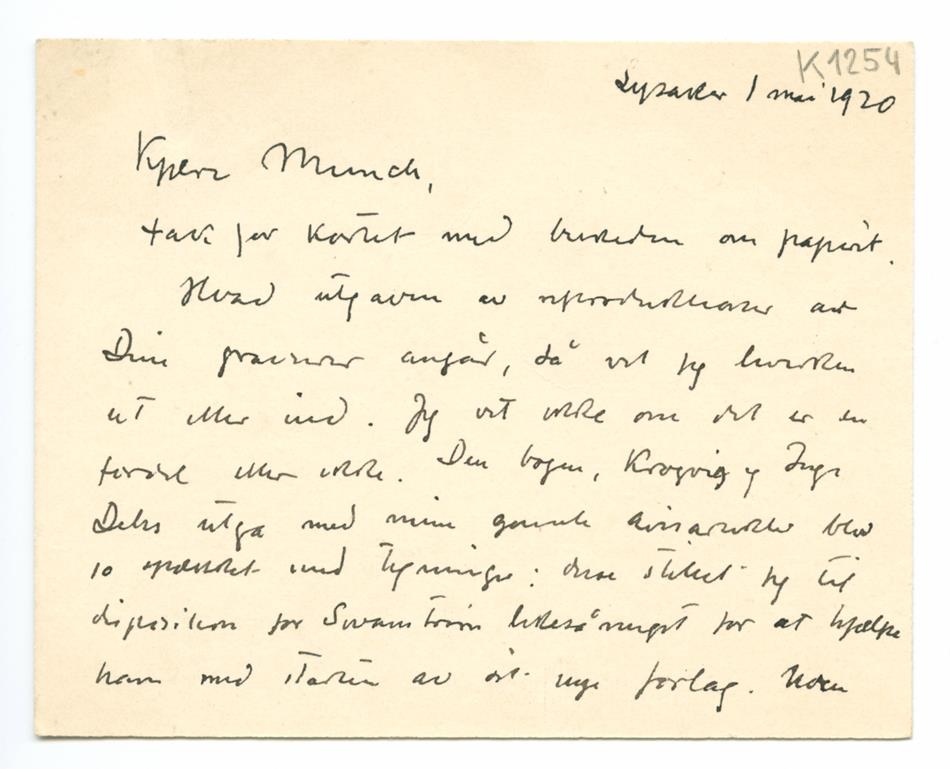 K1254
Lysaker 1 mai 1920
Kjære Munch,
tak for kortet med beskeden om papiret.
Hvad utgaven av reproduktioner av
Dine gravurer angår, så vet jeg hverken
ut eller ind. Jeg vet ikke om det er en
fordel eller ikke. Den bogen, Krogvig og Inge
Debes utga med mine gamle avisartikler blev
jo spækket med tegninger: disse stillet jeg til
disposition for Swanstrøm likeså meget for at hjælpe
ham med starten av sit nye forlag. Noen